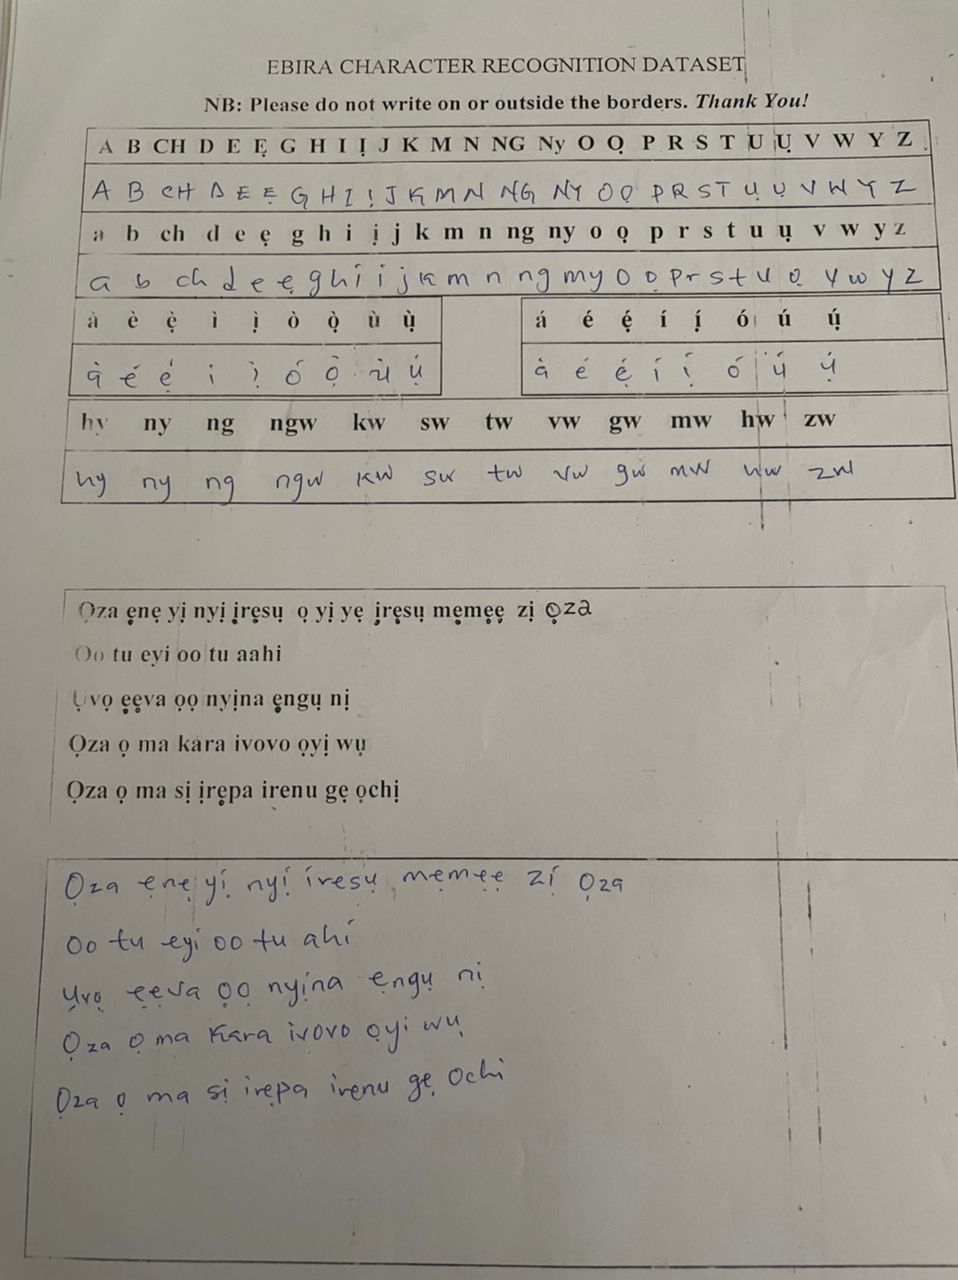 EBIRA CHARACTER RECOGNITION DATASET
NB: Please do not write on or outside the borders. Thank You!
A B CH D E Ẹ G H I Ị J K M N NG Ny O Ọ P R S T U Ụ V W Y Z
A B CH D E Ẹ G H I Ị J K M N NG NY O Ọ P R S T Ụ Ụ V W Y Z
a b ch d e ẹ g h i ị j k m n ng ny o ọ p r s t u ụ v w y z
a b ch d e ẹ g h í i j k m n ng my o ọ p r s t u ọ v w y z
à è ẹ̀ ì ị̀ ò ọ̀ ù ụ̀ á é ẹ́ í ị́ ó ú ụ́
ạ̀ é ẹ́ i ị̀ ó ọ̀ ù ụ́ à é ẹ́ í ị́ ó ú ụ́
hy ny ng ngw kw sw tw vw gw mw hw zw
hy ny ng ngw kw sw tw vw gw mw hw zw
Ọza ẹnẹ yị nyị ịrẹsụ ọ yị yẹ ịrẹsụ mẹmẹẹ zị ọza
Oo tu eyi oo tu aahi
Ụvọ ẹẹva ọọ nyịna ẹngụ nị
Ọza ọ ma kara ivovo ọyị wụ
Ọza ọ ma sị ịrẹpa irenu gẹ ọchị
Ọza ẹnẹ yị nyị íresụ mẹmẹẹ zí Ọza
Oo tu eyí oo tu ahí
Ụvọ ẹẹva ọọ nyịna ẹngụ nị
Ọza ọ ma Kara ivovo ọyi wụ
Ọza ọ ma sị irẹpa irenu gẹ Ochi